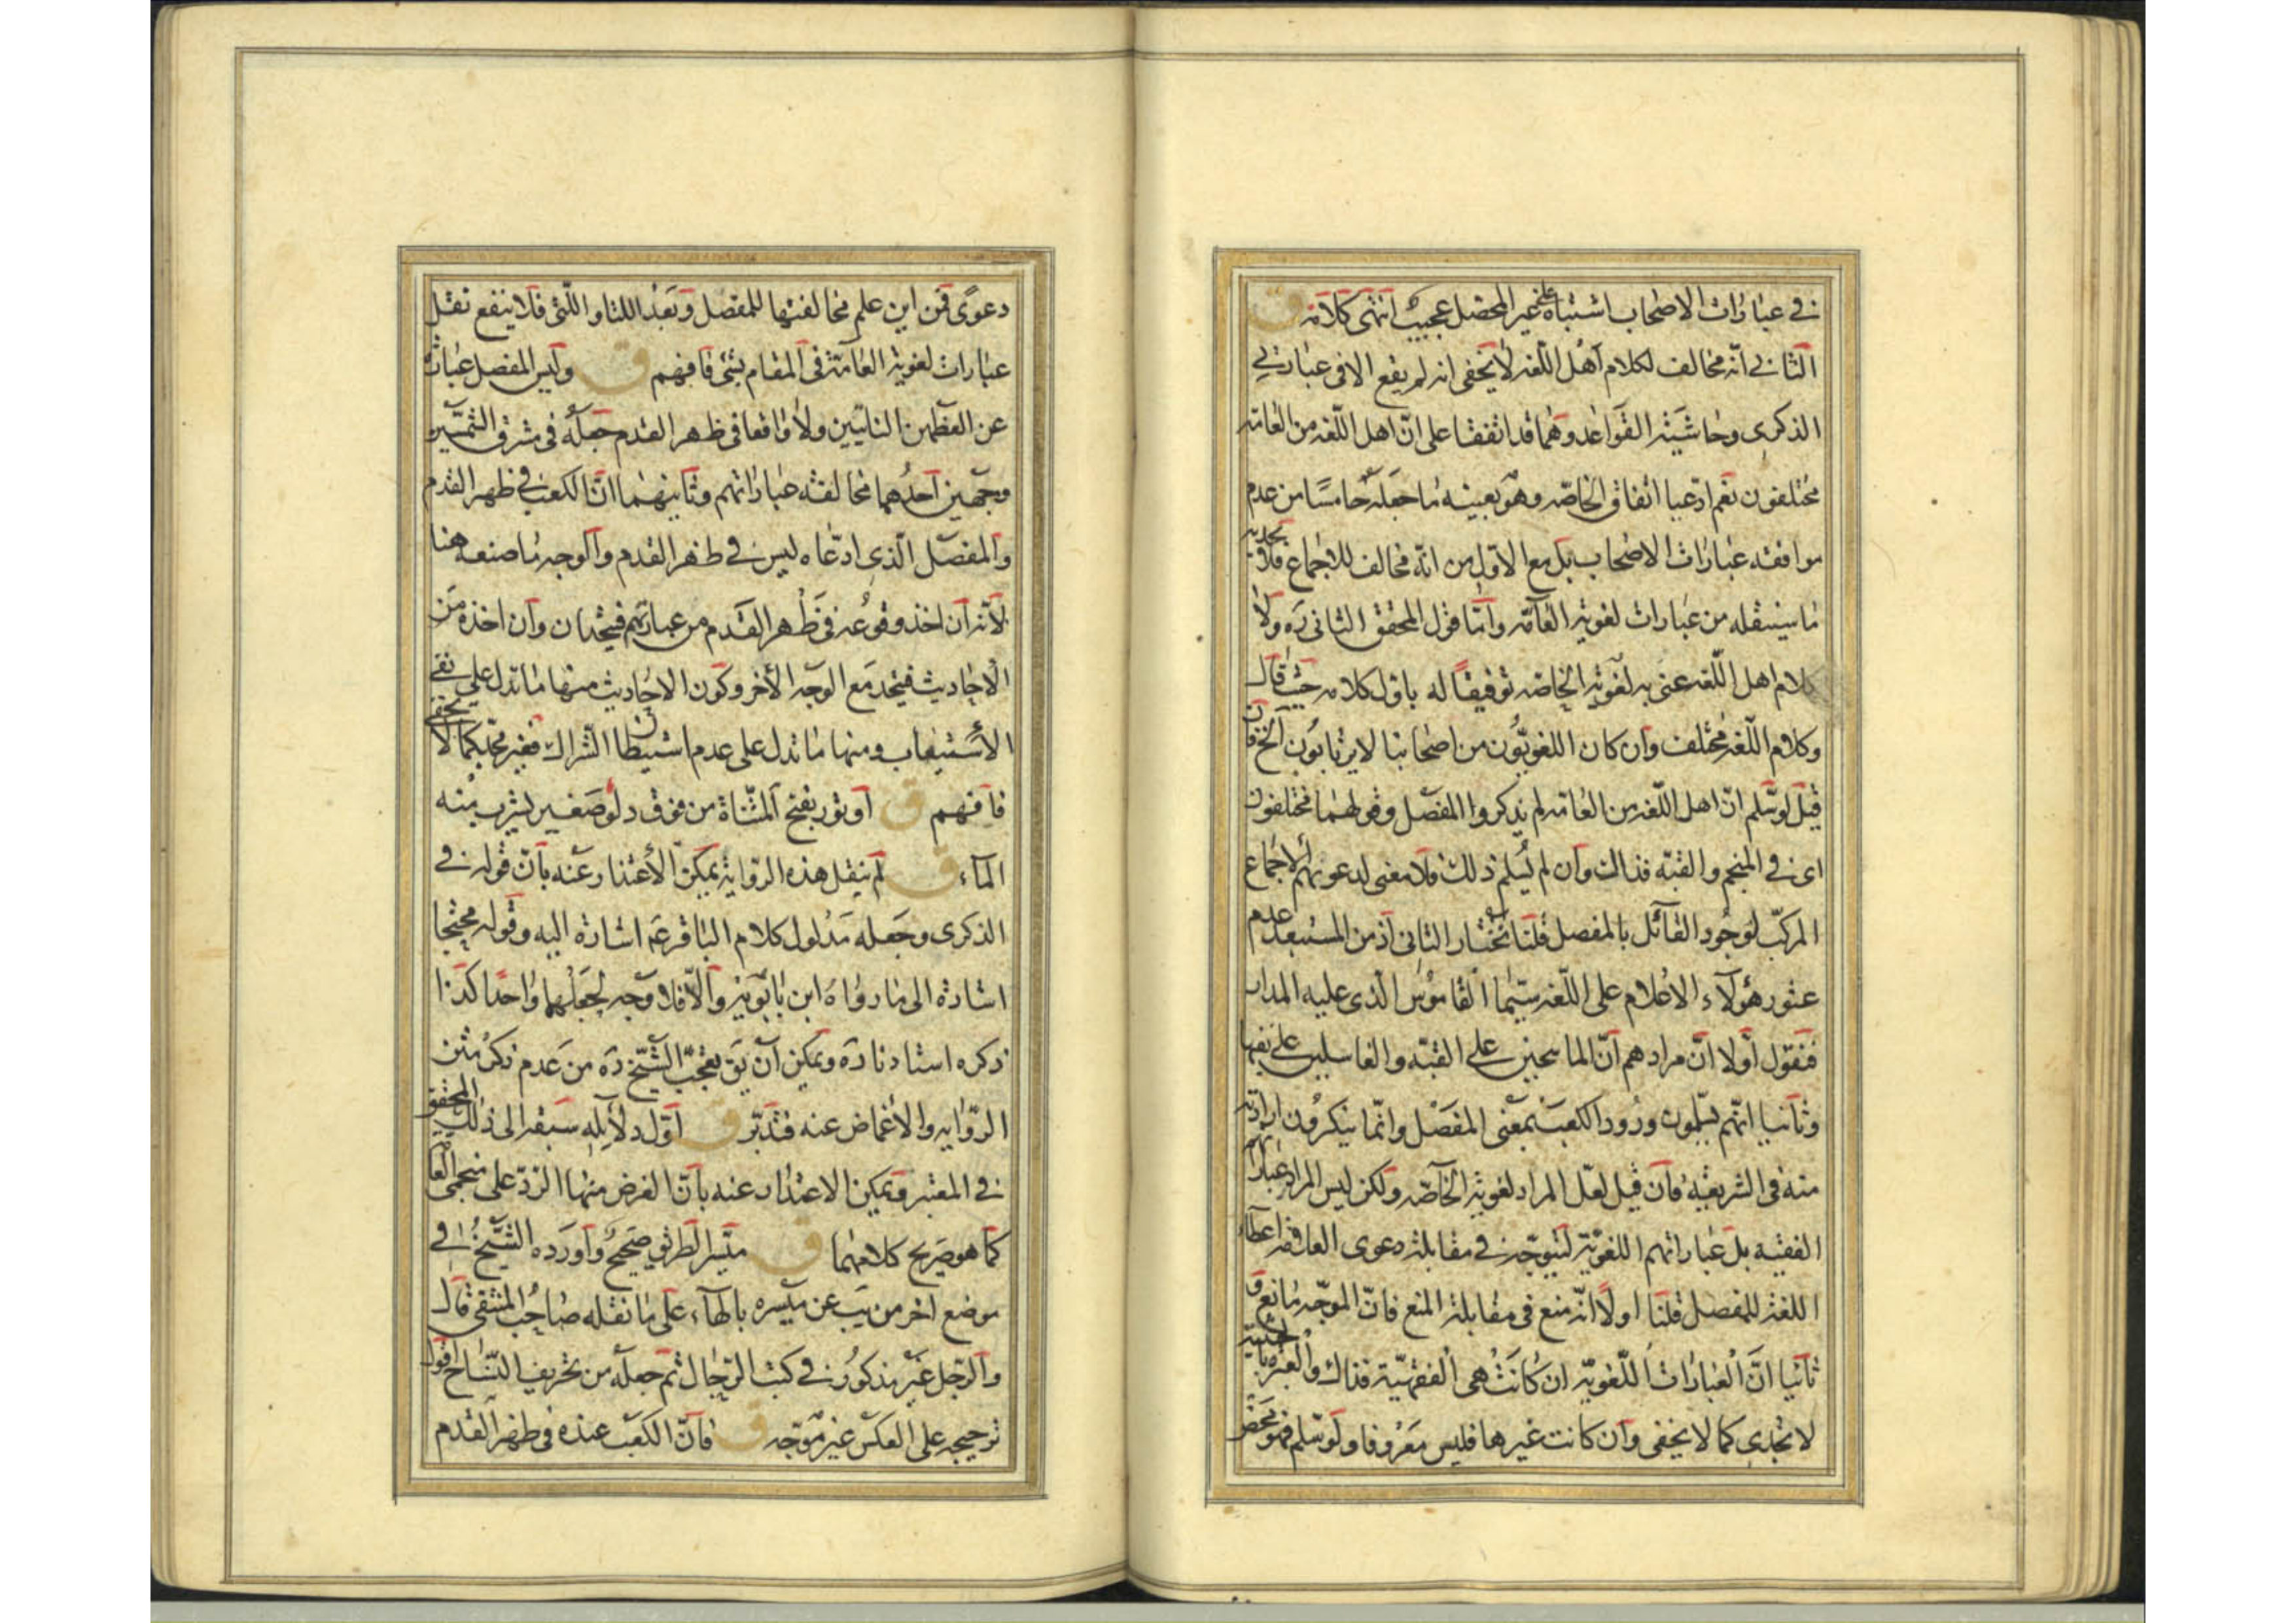 في عبارات الاصحاب اشتباه على غير المحصل عجيب انتهى كلامه ق
الثاني انه مخالف لكلام اهل اللغه لا يخفى انه لم يقع الا في عبارتي
الذكرى وحاشية القواعد وهما قد اتفقتا على ان اهل اللغه من العامه
مختلفون نعم ادعيا اتفاق الخاصه وهو بعينه ما جعله خامسا من عدم
موافقه عبارات الاصحاب بل مع الاول من انه مخالف للاجماع فلا يجديه
ما سينقله من عبارات لغوية العامه واما قول المحقق الثاني ره ولا
كلام اهل اللغه عنى به لغوية الخاصه توفيقا له باول كلامه حيث قال
وكلام اللغه مختلف وان كان اللغويون من اصحابنا لا يرتابون الخ فان
قيل لو سلم ان اهل اللغه من العامه لم يذكروا المفصل وقولهما مختلفون
اى في المنجم والقبه فذاك وان لم يسلم ذلك فلا معنى لدعوىهم الاجماع
المركب لوجود القائل بالمفصل قلنا نختار الثاني اذ من المستبعد عدم
عثور هؤلاء الاعلام على اللغه سيما القاموس الذى عليه المدار
فنقول أولا ان مرادهم ان الماسحين على القبه والغاسلين على نفيها
وثانيا انهم يسلمون ورود الكعب بمعنى المفصل وانما ينكرون ارادته
منه في الشريعة فان قيل لعل المراد لغوية الخاصه ولكن ليس المراد عباراتهم
الفقهية بل عباراتهم اللغوية ليتوجه في مقابلة دعوى العلامه اعطاء
اللغة للمفصل قلنا اولا انه منع في مقابلة المنع فان الموجه مانع و
ثانيا ان العبارات اللغوية ان كانت هي الفقهية فذاك والعبره بالحيثية
لا تجدي كما لا يخفى وان كانت غيرها فليس معروفا ولو سلم فهو محض
دعوى فمن اين علم مخالفتها للمفصل وبعد اللتا واللتى فلا ينفع نقل
عبارات لغوية العامة في المقام بشئ فافهم ق وليس المفصل عبارة
عن العظمين الناتيين ولا واقعا في ظهر القدم جعله في مشرق الشمسين
وجهين احدهما مخالفته عباراتهم وثانيهما ان الكعب في ظهر القدم
والمفصل الذي ادعاه ليس في ظهر القدم والوجه ما صنعه هنا
لانه ان اخذ وقوعه في ظهر القدم من عباراتهم فيتحدان وان اخذه من
الاحاديث فيتحد مع الوجه الاخر وكون الاحاديث منها ما تدل على نفي
الاستيعاب ومنها ما تدل على عدم استبطان الشراك فغير مجد كما لا يخفى
فافهم ق او تور بفتح المثناة من فوق دلو صغير يشرب منه
الماء ق لم ينقل هذه الرواية يمكن الاعتذار عنه بان قوله في
الذكرى وجعله مدلول كلام الباقر عم اشارة اليه وقوله محتجا
اشارة الى ما رواه ابن بابويه والا فلا وجه لجعلهما واحدا كذا
ذكره استادنا ره ويمكن ان يق تعجب الشيخ ره من عدم ذكر متن
الرواية والاغماض عنه فتدبر ق اول دلايله سبقه الى ذلك المحقق
في المعتبر ويمكن الاعتذار عنه بان الغرض منها الرد على منجمي العامه
كما هو صريح كلامهما ق ميسر الطريق صحيح واورده الشيخ في
موضع اخر من يب عن ميسره بالهاء على ما نقله صاحب المنتقى قال
والرجل غير مذكور في كتب الرجال ثم جعله من تحريف النساخ اقول
ترجيحه على العكس غير موجه ق فان الكعب عنده في ظهر القدم